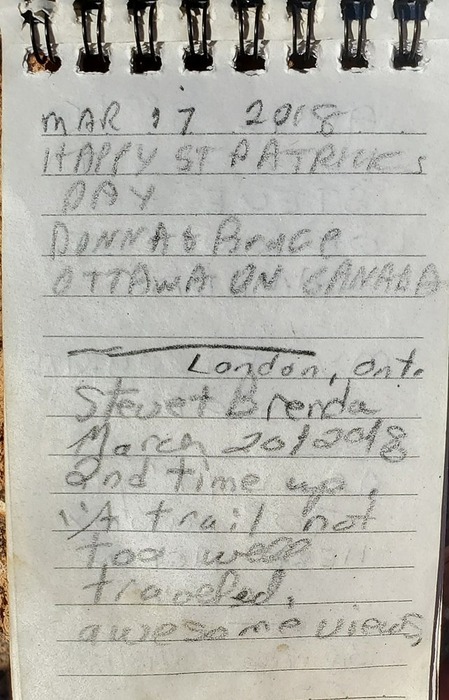 MAR 17 2018
HAPPY ST PATRICKS
DAY
DONNA & BRUCE
OTTAWA ON CANADA
London, Ont.
Steve & Brenda
March 20/2018
2nd time up.
"A trail not
too well
traveled,
awesome views,